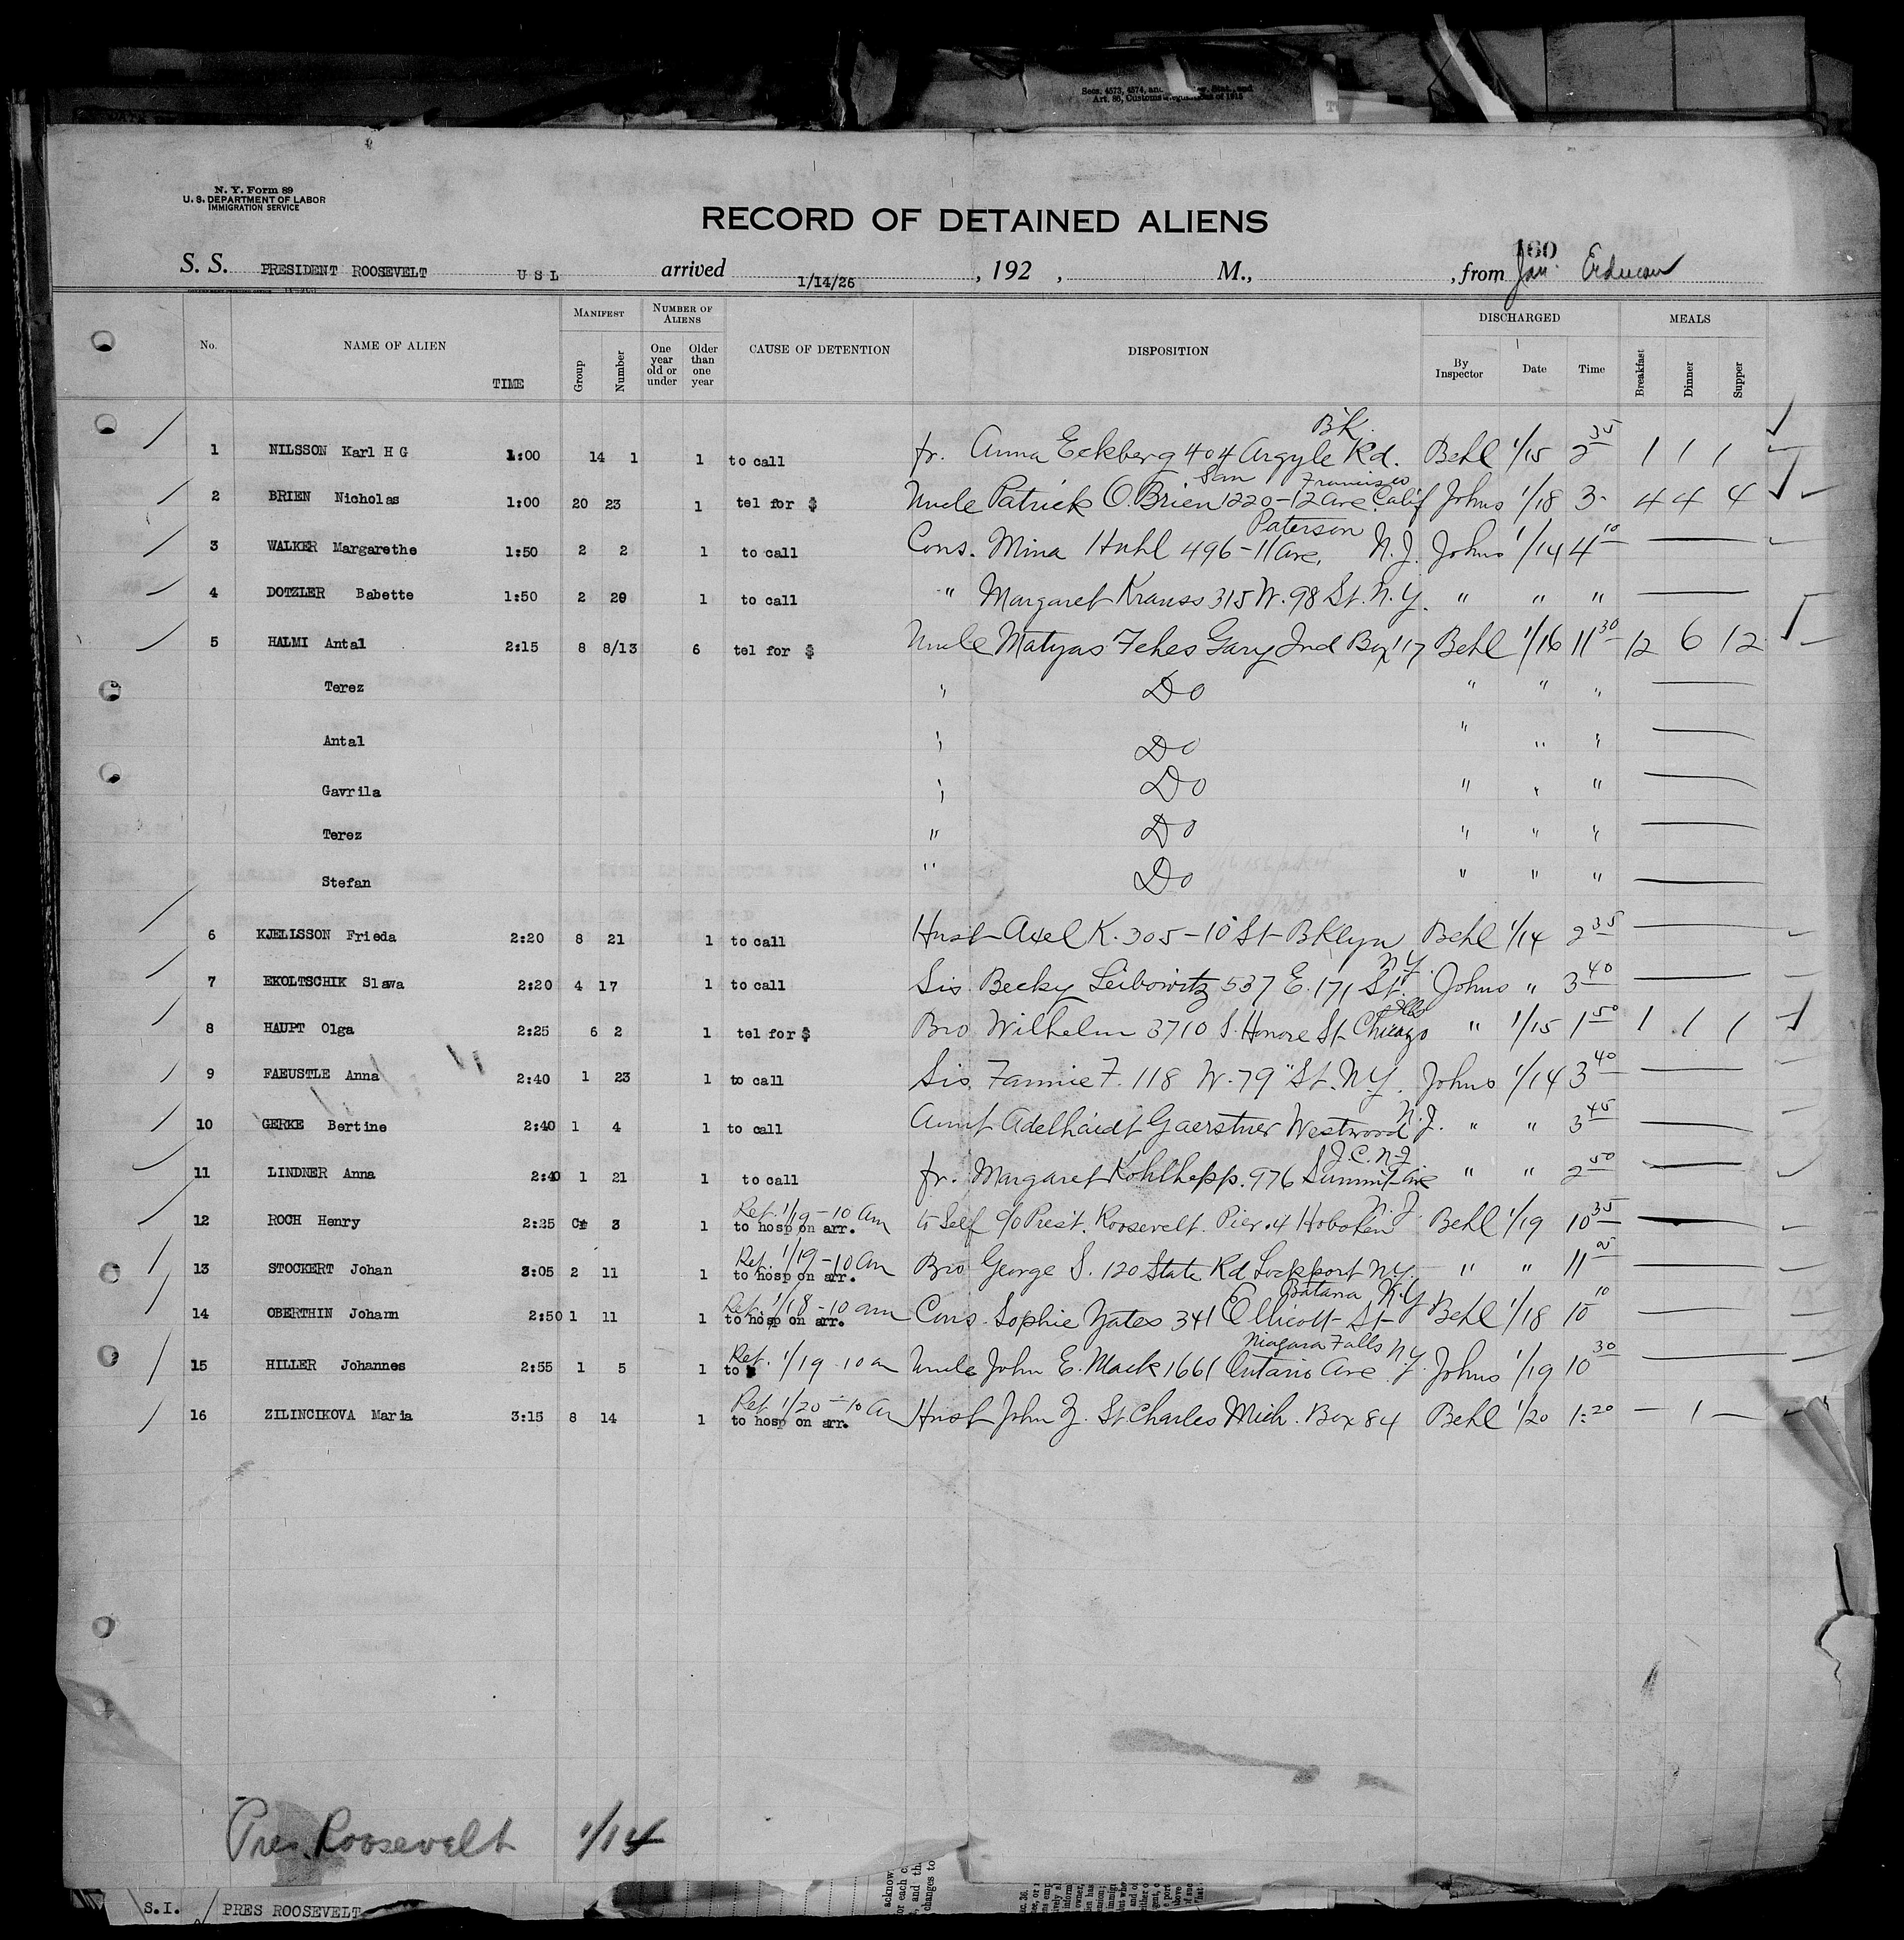 Secs. 4573, 4574, and Stat., and
Art. 86, Customs of 1915
N. Y. Form 89
U. S. DEPARTMENT OF LABOR
IMMIGRATION SERVICE
RECORD OF DETAINED ALIENS
160
S. S. PRESIDENT ROOSEVELT U S L arrived 1/14/26, 192 , M., , from Jan.
No. NAME OF ALIEN TIME MANIFEST Group Number NUMBER OF ALIENS One year old or under Older than one year CAUSE OF DETENTION DISPOSITION DISCHARGED By Inspector Date Time MEALS Breakfast Dinner Supper
1 NILSSON Karl H G 1:00 14 1 1 to call fr. Anna Eckberg 404 Argyle Rd. Bk. Behl 1/15 2 35 1 1 1
2 BRIEN Nicholas 1:00 20 23 1 tel for $ Uncle Patrick O.Brien 1220-12 ave. San Francisco Calif Johns 1/18 3- 4 4 4
3 WALKER Margarethe 1:50 2 2 1 to call Cons. Mina Huhl 496-11 ave, Paterson N.J. Johns 1/14 4 10
4 DOTZLER Babette 1:50 2 29 1 to call " Margaret Krauss 315 W. 98 St. N.Y. " " "
5 HALMI Antal 2:15 8 8/13 6 tel for $ Uncle Matyas Fehes Gary Ind Box 117 Behl 1/16 11 30 12 6 12
Terez " Do " " "
Antal " Do " " "
Gavrila " Do " " "
Terez " Do " " "
Stefan " Do " " "
6 KJELLSSON Frieda 2:20 8 21 1 to call Husb Axel K. 305-10 St Bklyn Behl 1/14 2 35
7 EKOLTSCHIK Slawa 2:20 4 17 1 to call Sis Becky Leibowitz 537 E. 171 St. N.Y. Johns " 3 40
8 HAUPT Olga 2:25 6 2 1 tel for $ Bro Wilhelm 3710 S. Honore St Chicago Ills " 1/15 1 50 1 1 1
9 FAEUSTLE Anna 2:40 1 23 1 to call Sis. Fannie F. 118 W. 79 St. NY. Johns 1/14 3 40
10 GERKE Bertine 2:40 1 4 1 to call Aunt Adelhaidt Gaerstner Westwood N.J. " " 3 45
11 LINDNER Anna 2:40 1 21 1 to call fr. Margaret Kohlhepp. 976 Summit ave J.C. N.J " " 2 50
12 ROCH Henry 2:25 3 1 Ret. 1/19-10 am to hosp on arr. to Self c/o Prest. Roosevelt. Pier 4 Hoboken N.J. Behl 1/19 10 35
13 STOCKERT Johan 3:05 2 11 1 Ret. 1/19-10 am to hosp on arr. Bro George S. 120 State Rd Lockport NY. " " 11
14 OBERTHIN Johann 2:50 1 11 1 Ret. 1/18-10 am to hosp on arr. Cons. Sophie Yates 341 Ellicott St Batavia N.Y Behl 1/18 10 10
15 HILLER Johannes 2:55 1 5 1 Ret. 1/19 10 a to Uncle John E. Mack 1661 Ontario Ave Niagara Falls N.Y. Johns 1/19 10 30
16 ZILINCIKOVA Maria 3:15 8 14 1 Ret 1/20-10 am to hosp on arr. Husb John Z. St Charles Mich. Box 84 Behl 1/20 1:20 — 1 —
Pres. Roosevelt 1/14
S.I. / PRES ROOSEVELT